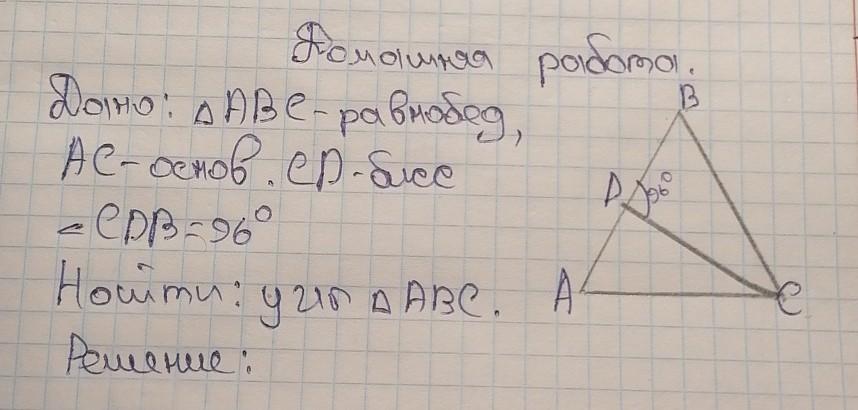 Домашняя работа.
Дано: △ABC-равнобед,
AC-основ. CD-бисс
∠CDB=96°
Найти: углы △ABC.
Решение:
B
D 96°
A C